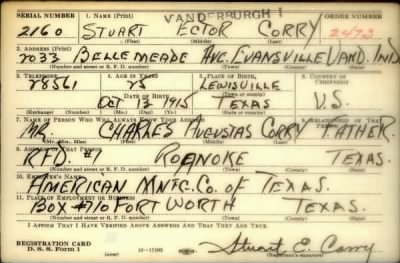 SERIAL NUMBER 1. NAME (Print) VANDERBURGH 1 ORDER NUMBER
2160 STUART ECTOR CORRY 2473
(First) (Middle) (Last)
2. ADDRESS (Print)
2033 BELLEMEADE AVE. EVANSVILLE VAND. IND
(Number and street or R. F. D. number) (Town) (County) (State)
3. TELEPHONE 4. AGE IN YEARS 5. PLACE OF BIRTH 6. COUNTRY OF CITIZENSHIP
28561 LEWISVILLE
DATE OF BIRTH (Town or county)
OCT 13 1915 TEXAS U.S.
(Exchange) (Number) (Mo.) (Day) (Yr.) (State or country)
7. NAME OF PERSON WHO WILL ALWAYS KNOW YOUR ADDRESS 8. RELATIONSHIP OF THAT PERSON
MR. CHARLES AUGUSTAS CORRY FATHER.
(Mr., Mrs., Miss) (First) (Middle) (Last)
9. ADDRESS OF THAT PERSON
RFD. #7 ROANOKE TEXAS.
(Number and street or R. F. D. number) (Town) (County) (State)
10. EMPLOYER'S NAME
AMERICAN MNFG. CO. OF TEXAS.
11. PLACE OF EMPLOYMENT OR BUSINESS
BOX #710 FORT WORTH TEXAS.
(Number and street or R. F. D. number) (Town) (County) (State)
I AFFIRM THAT I HAVE VERIFIED ABOVE ANSWERS AND THAT THEY ARE TRUE.
REGISTRATION CARD
D. S. S. Form 1 16—17105 Stuart E. Corry
(Registrant's signature)